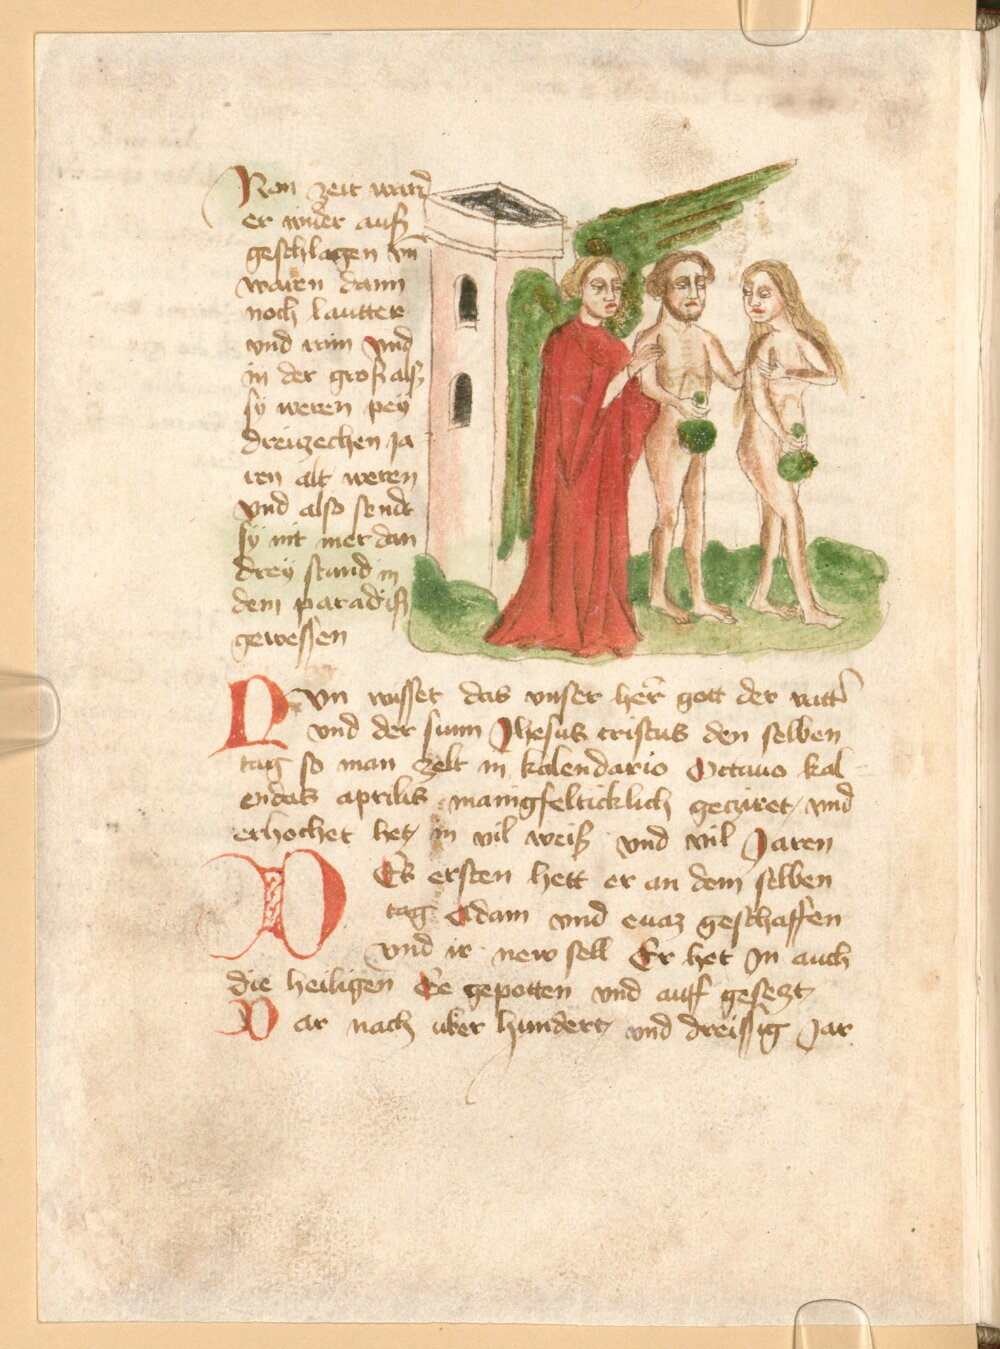 Non zeit ward
er wider auß
geschlagen vn̄
waren dann
noch lautter
vnd rain vnd
in der groß alß
sy weren pey
dreiizechen ja
ren alt weren
vnd also sendt
sy nit mer dan
drey stund in
dem paradiß
gewessen
Nvn wisset das vnser her̄ gott der vatt̄
vnd der sunn Jhesus cristus den selben
tag so man zelt in kalendario Octauo kal
endas aprilis manigfelticklich gecziret vnd
erhochet het in vil weiß vnd vil Jaren
Des ersten hett er an dem selben
tag Adam vnd euaz geschaffen
vnd ir new sell Er het In auch
die heiligen Ee gepotten vnd auff geseczt
Dar nach uber hundert vnd dreissig Jar